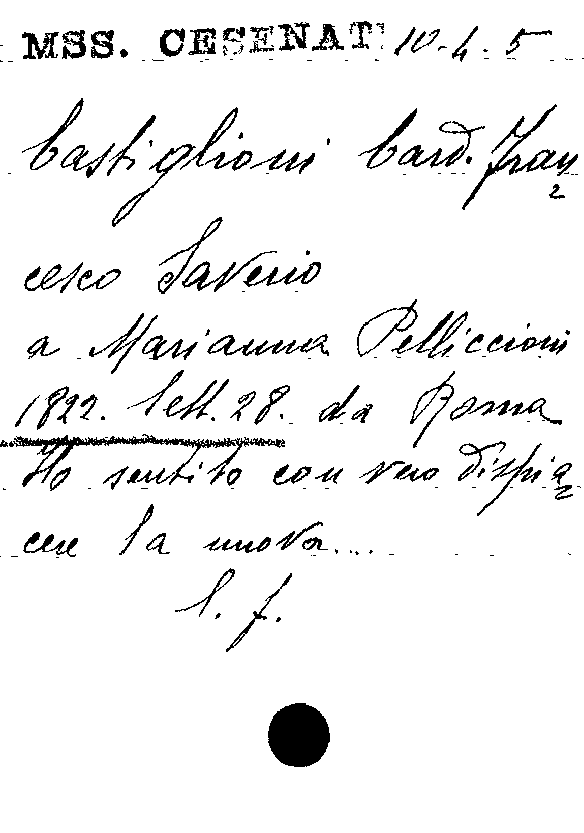 MSS. CESENATI 10-4-5
Castiglioni Card. Fran
cesco Saverio
a Marianna Pelliccioni
1822. Sett. 28. da Roma
Ho sentito con vero dispia
cere la nuova....
l. f.